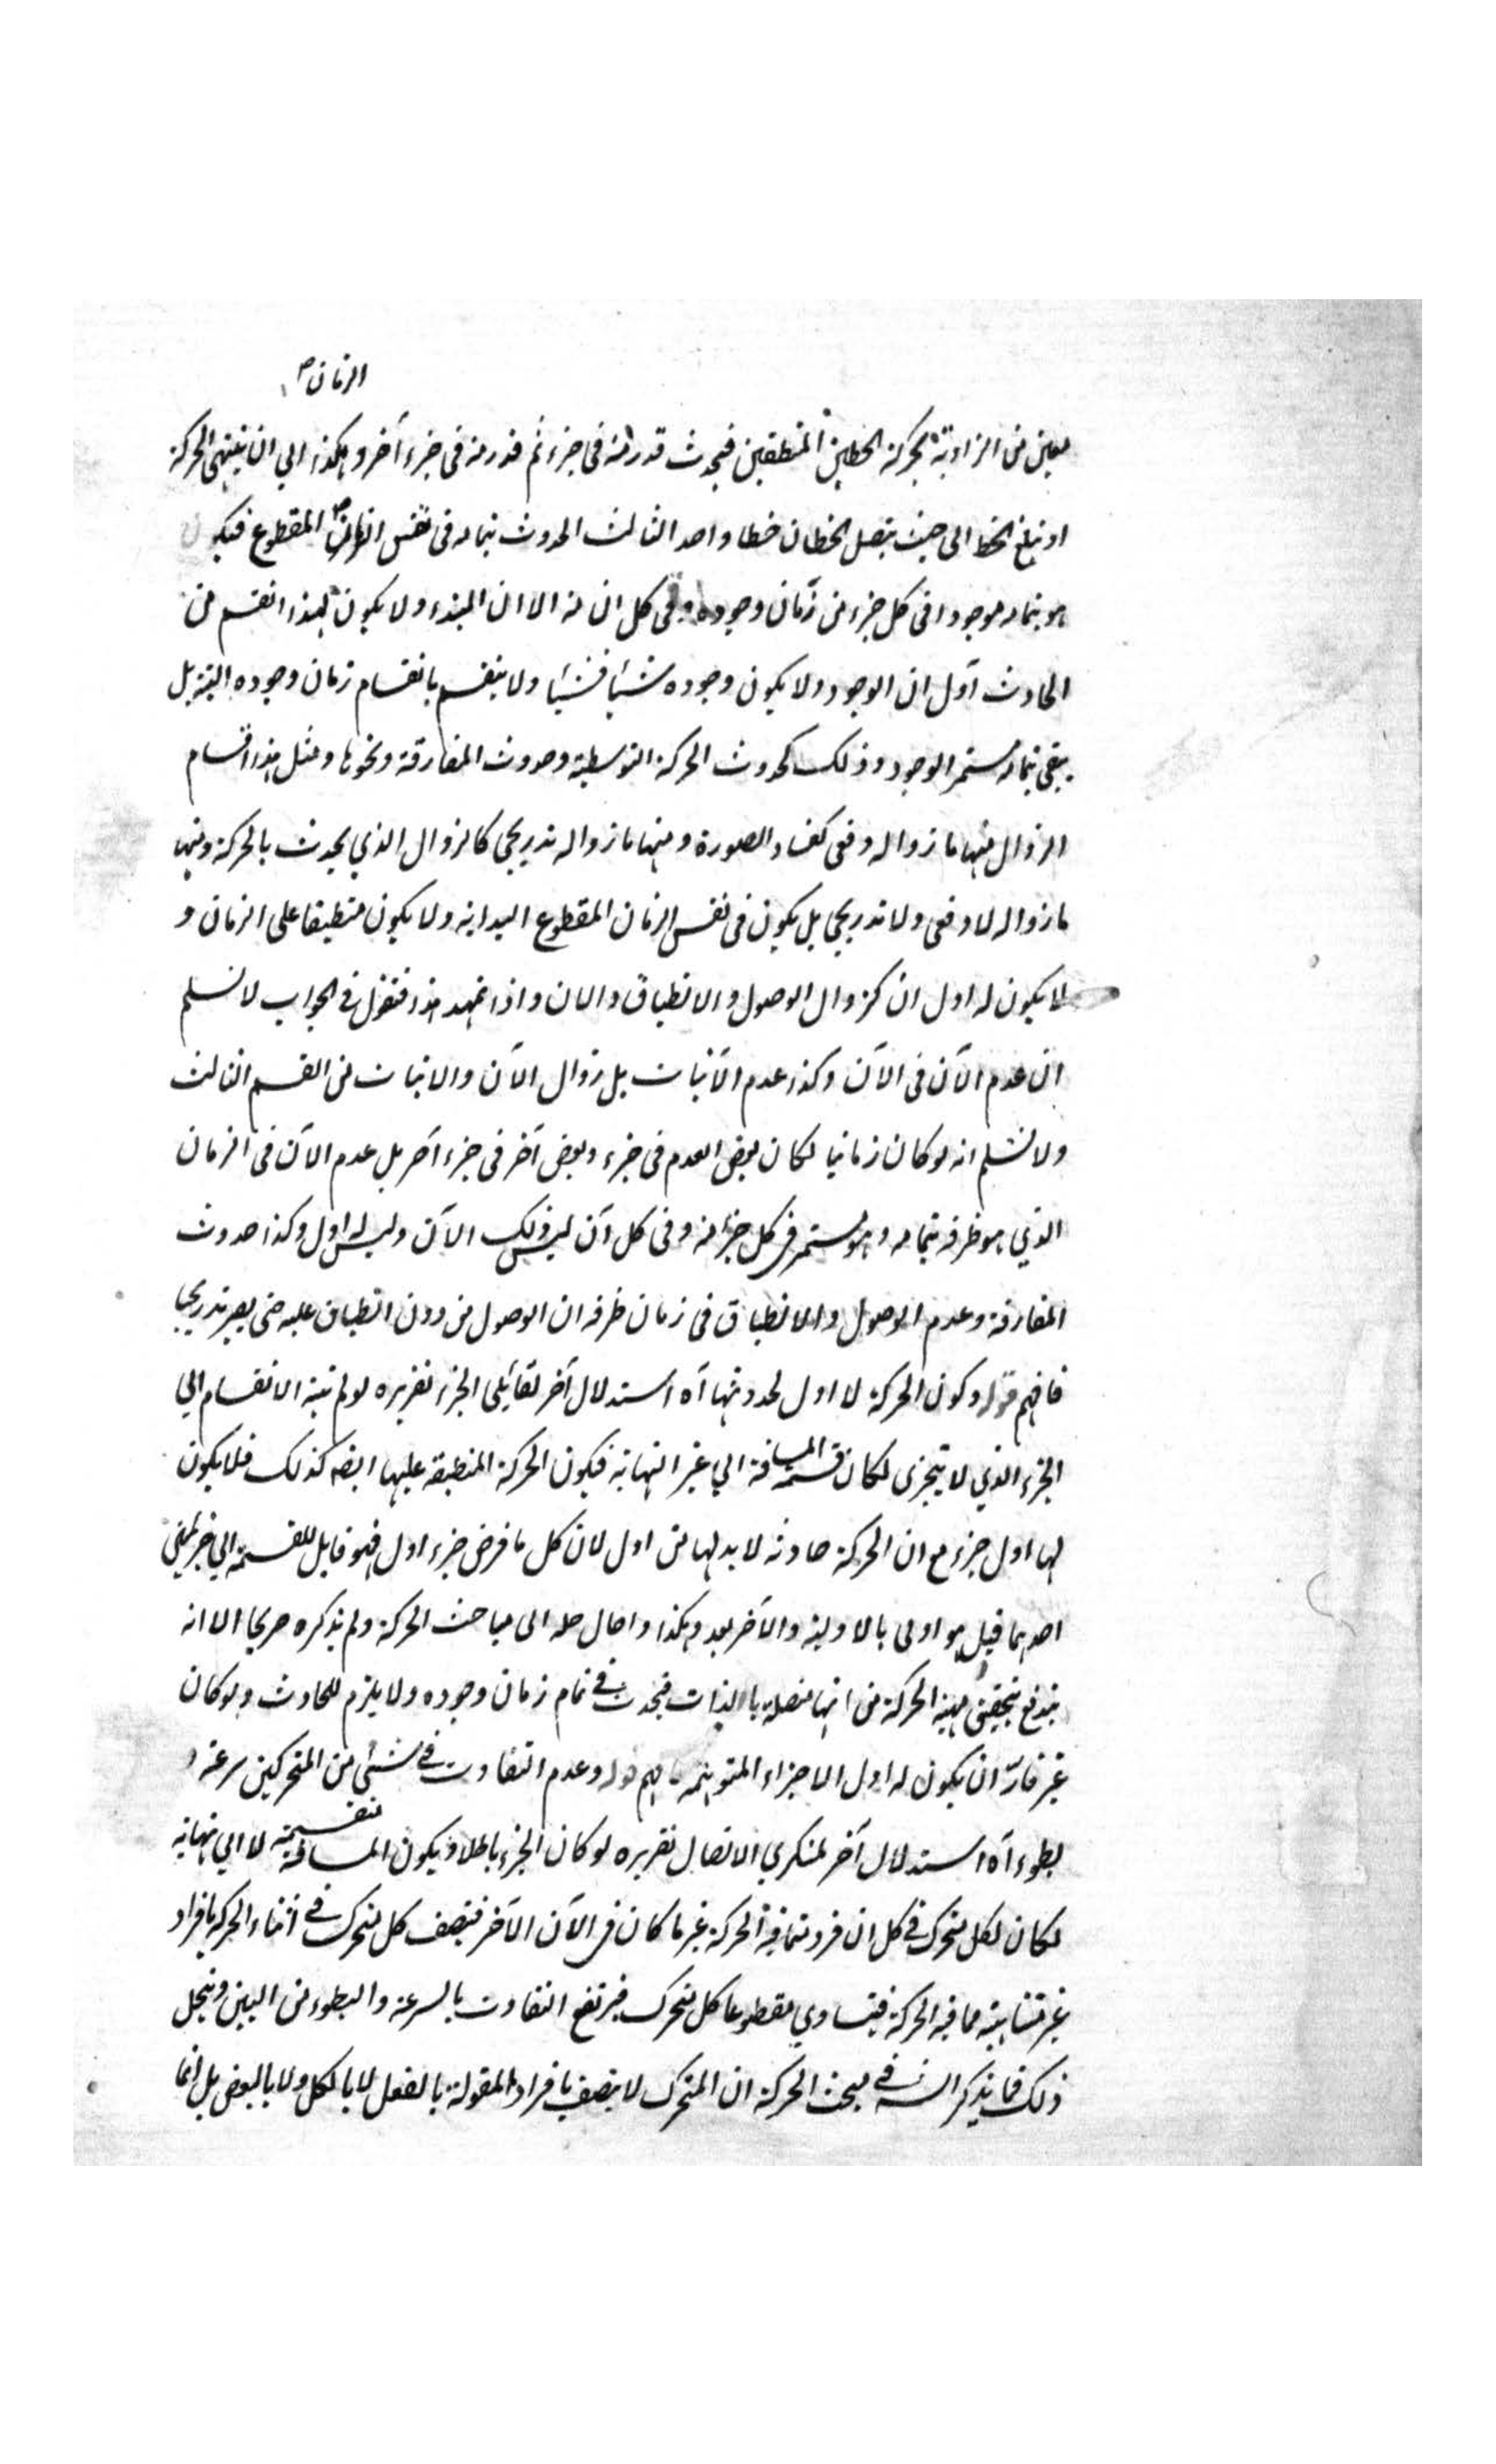 الزمان صح
معين من الزاوية بحركة الخطين المنطبقين فيحدث قدر منه في جزء ثم قدر منه في جزء آخر وهكذا الي ان ينتهي الحركة
او يبلغ الخط الى حيث يتصل الخطان خطا واحدا الثالث الحدوث بتمامه في نفس الزمان المقطوع فيكون
هو بتمامه موجودا في كل جزء من زمان وجوده وفي كل ان منه الا ان المبدء ولا يكون لهذا القسم من
الحادث اول ان الوجود ولا يكون وجوده شيئا فشيئا ولا ينقسم بانقسام زمان وجوده البتة بل
يبقى بتمامه مستمر الوجود وذلك كحدوث الحركة التوسطية وحدوث المفارقة ونحوها ومثل هذا اقسام
الزوال منها ما زواله دفعي كفساد الصورة ومنها ما زواله تدريجي كالزوال الذي يحدث بالحركة ومنها
ما زواله لا دفعي ولا تدريجي بل يكون في نفس الزمان المقطوع البداية ولا يكون منطبقا على الزمان و
لا يكون له اول ان كزوال الوصول والانطباق والان واذا تمهد هذا فنقول في الجواب لا نسلم
ان عدم الآن في الآن وكذا عدم الآنيات بل زوال الآن والانيات من القسم الثالث
ولا نسلم انه لو كان زمانيا لكان بعض العدم في جزء وبعض آخر في جزء آخر بل عدم الآن في الزمان
الذي هو ظرفه بتمامه وهو مستمر في كل جزء منه وفي كل آن ليس ذلك الآن وليس له اول وكذا حدوث
المفارقة وعدم الوصول واللاانطباق في زمان طرفه ان الوصول من دون انطباق عليه حتى يصير تدريجيا
فافهم قوله وكون الحركة لا اول لحدوثها آه استدلال آخر لقائلي الجزء تقريره لو لم ينته الانقسام الي
الجزء الذي لا يتجزى لكان قسمة المسافة الي غير النهاية فيكون الحركة المنطبقة عليها ايضه كذلك فلا يكون
لها اول جزء مع ان الحركة حادثه لا بد لها من اول لان كل ما فرض جزء اول فهو قابل للقسمة الي جزئين
احدهما قبل هو اولى بالاولية والآخر بعد وهكذا واحال حله الى مباحث الحركة ولم يذكره صريحا الا انه
يندفع بتحقيق مهية الحركة من انها متصلة بالذات فيحدث في تمام زمان وجوده ولا يلزم للحادث ولو كان
غير قارة ان يكون له اول الاجزاء المتوهمة فافهم قوله وعدم التفاوت في شئ من المتحركين سرعة و
بطوء آه استدلال آخر لمنكري الاتصال تقريره لو كان الجزء باطلا ويكون المسافة منقسمة لا الي نهاية
لكان لكل متحرك في كل ان فرد مما فيه الحركة غير ما كان في الآن الآخر فيتصف كل متحرك في اثناء الحركة بافراد
غير متناهية مما فيه الحركة فيتساوي مقطوعا كل متحرك فيرتفع التفاوت بالسرعة والبطوء من البين وينحل
ذلك فما يذكر الشه في مبحث الحركة ان المتحرك لا يتصف بافراد المقولة بالفعل لا بالكل ولا بالبعض بل انما